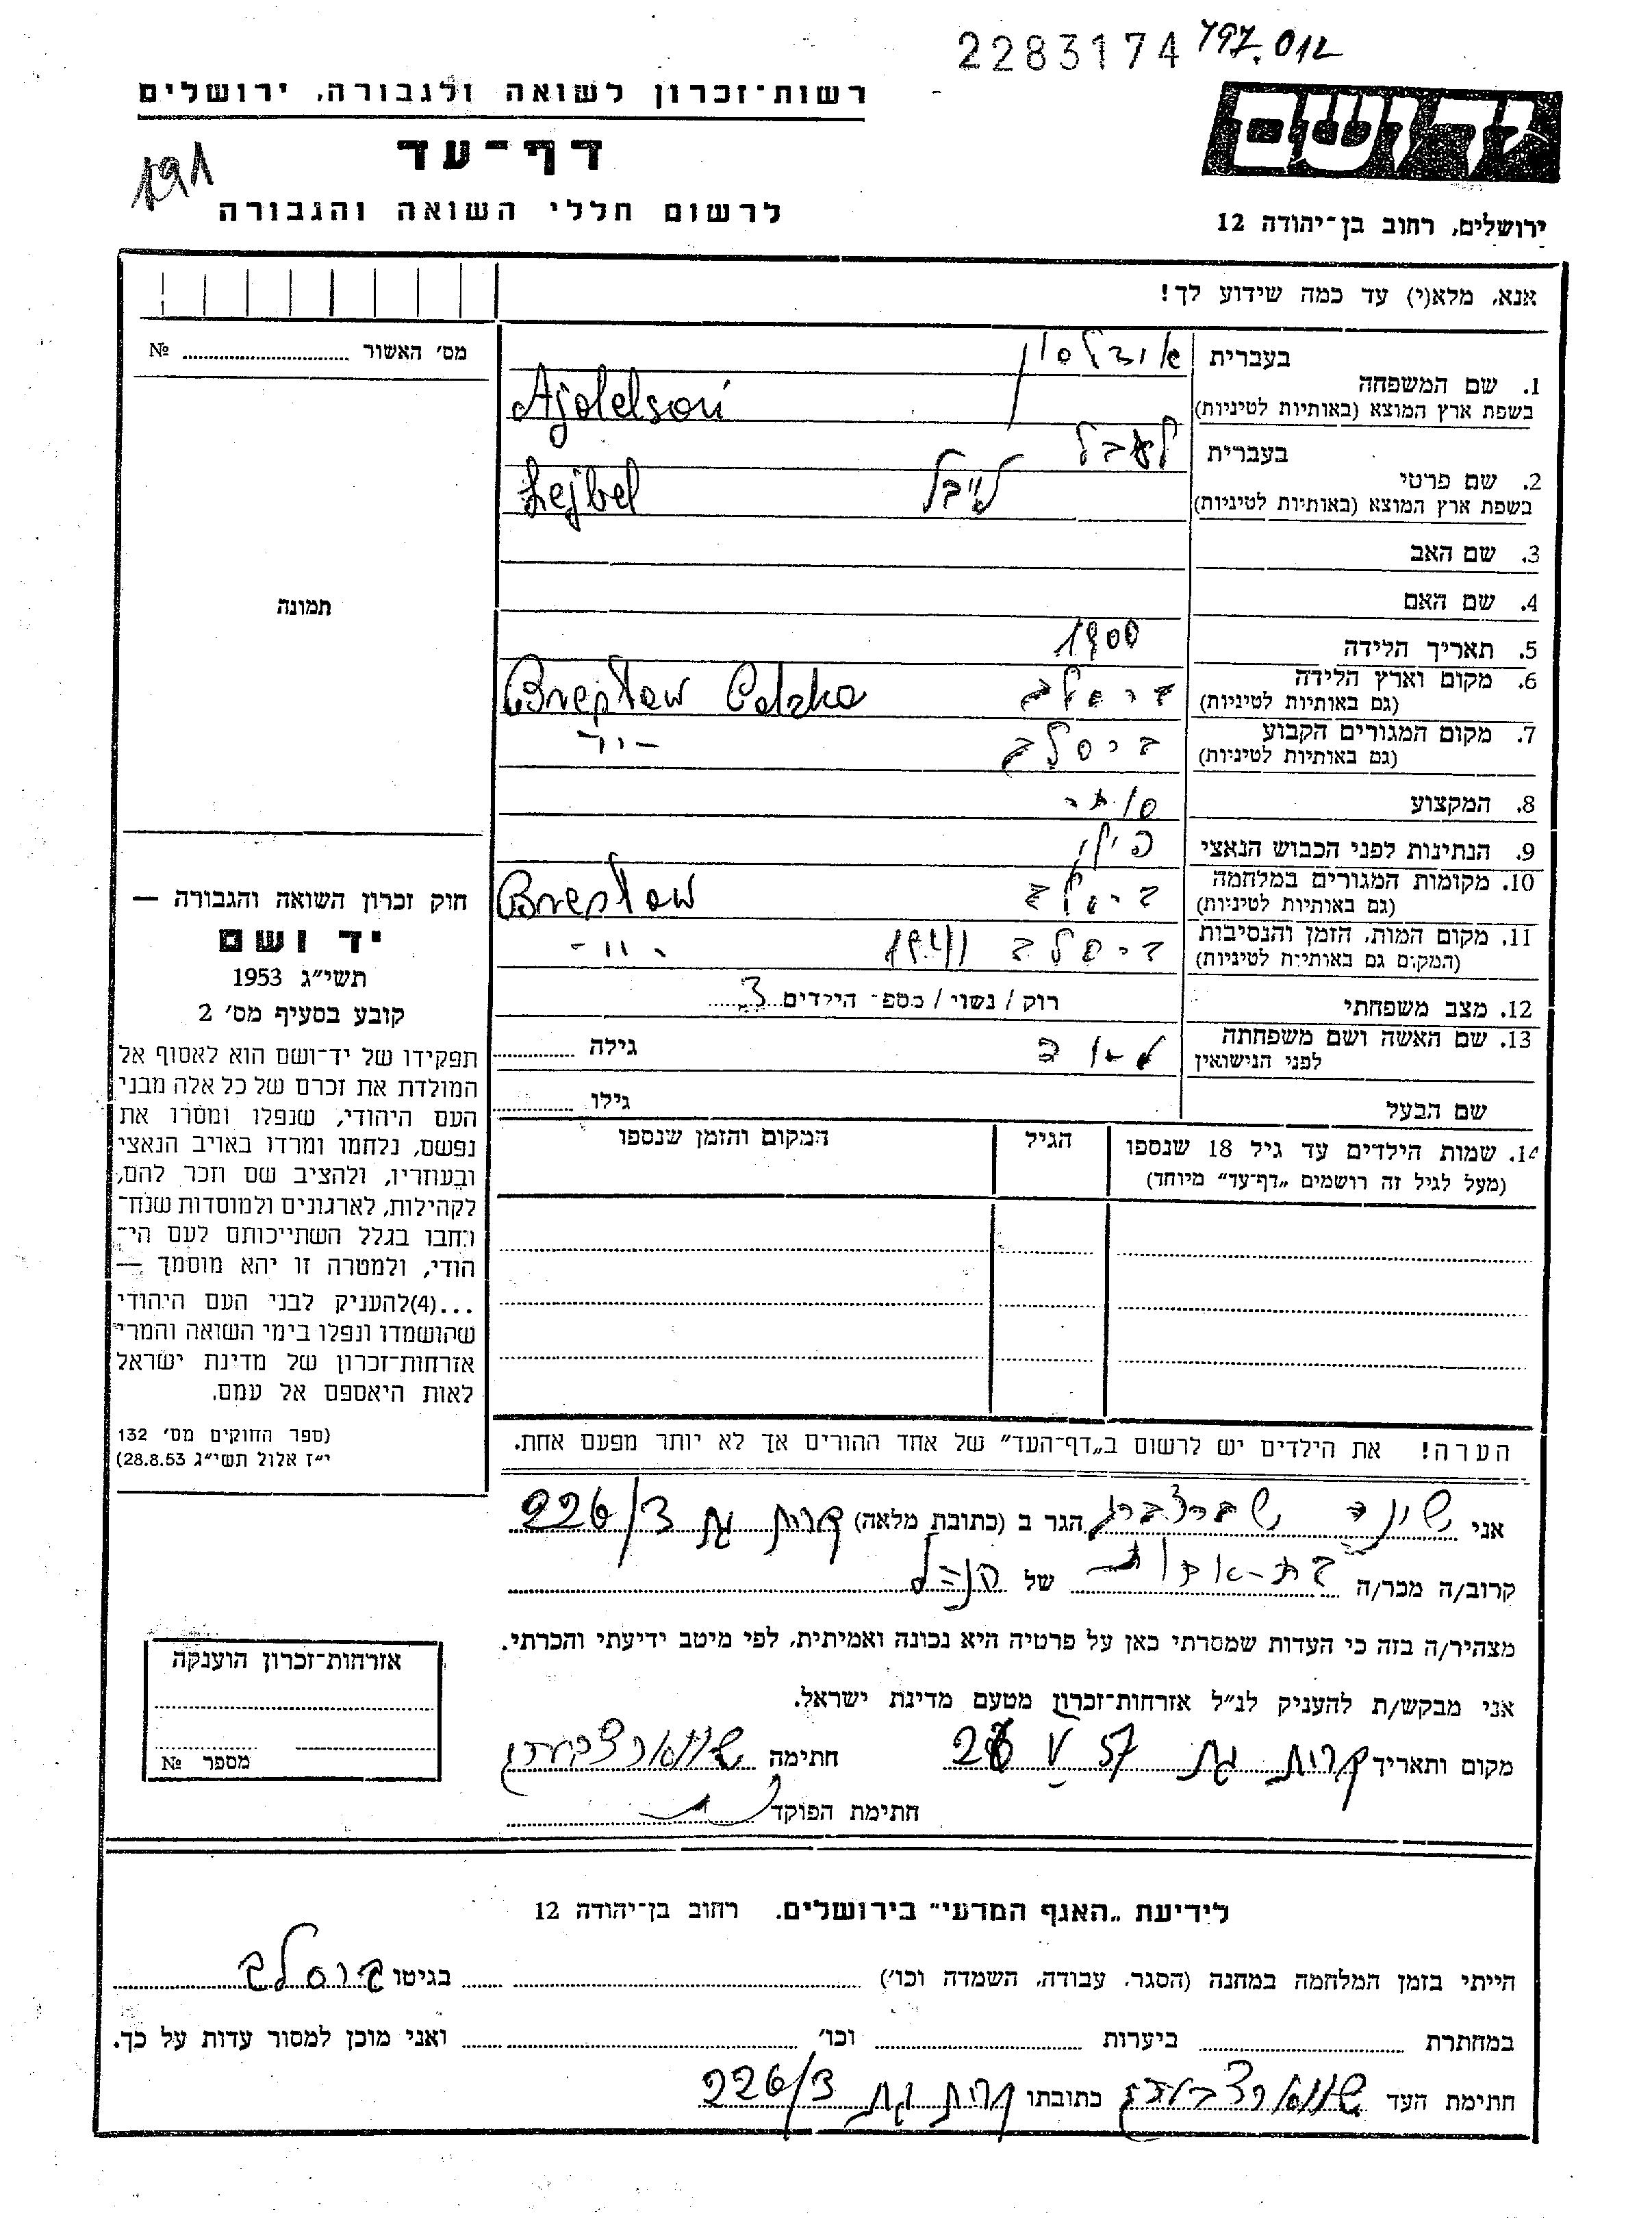 2283174 797.012
רשות־זכרון לשואה ולגבורה, ירושלים
יד ושם
דף־עד
191
לרשום חללי השואה והגבורה
ירושלים, רחוב בן־יהודה 12
אנא, מלא(י) עד כמה שידוע לך!
מס׳ האשור № 
1. שם המשפחה
בעברית
בשפת ארץ המוצא (באותיות לטיניות)
2. שם פרטי
בעברית
בשפת ארץ המוצא (באותיות לטיניות)
לייבל Lejbel
3. שם האב
4. שם האם
תמונה
5. תאריך הלידה 1900
6. מקום וארץ הלידה
(גם באותיות לטיניות)
7. מקום המגורים הקבוע
(גם באותיות לטיניות)
8. המקצוע
9. הנתינות לפני הכבוש הנאצי
10. מקומות המגורים במלחמה
(גם באותיות לטיניות)
11. מקום המות, הזמן והנסיבות 1941
(המקום גם באותיות לטיניות)
12. מצב משפחתי רוק / נשוי / מספ־ הילדים 3
13. שם האשה ושם משפחתה
לפני הנישואין
גילה
שם הבעל
גילו
14. שמות הילדים עד גיל 18 שנספו
(מעל לגיל זה רושמים „דף־עד״ מיוחד)
הגיל
המקום והזמן שנספו
חוק זכרון השואה והגבורה —
יד ושם
תשי״ג 1953
קובע בסעיף מס׳ 2
תפקידו של יד־ושם הוא לאסוף אל
המולדת את זכרם של כל אלה מבני
העם היהודי, שנפלו ומסרו את
נפשם, נלחמו ומרדו באויב הנאצי
ובעוזריו, ולהציב שם וזכר להם,
לקהילות, לארגונים ולמוסדות שנח־
רחבו בגלל השתייכותם לעם הי־
הודי, ולמטרה זו יהא מוסמך —
...(4)להעניק לבני העם היהודי
שהושמדו ונפלו בימי השואה והמרי
אזרחות־זכרון של מדינת ישראל
לאות היאספם אל עמם.
(ספר החוקים מס׳ 132
י״ז אלול תשי״ג 28.8.53)
הערה! את הילדים יש לרשום ב„דף־העד״ של אחד ההורים אך לא יותר מפעם אחת.
אני הגר ב (כתובת מלאה) קרית גת 226/3
קרוב/ה מכר/ה של
מצהיר/ה בזה כי העדות שמסרתי כאן על פרטיה היא נכונה ואמיתית, לפי מיטב ידיעתי והכרתי.
אני מבקש/ת להעניק לנ״ל אזרחות־זכרון מטעם מדינת ישראל.
מקום ותאריך קרית גת V 57 חתימה
חתימת הפוקד
אזרחות־זכרון הוענקה
מספר №
לידיעת „האגף המדעי״ בירושלים. רחוב בן־יהודה 12
הייתי בזמן המלחמה במחנה (הסגר, עבודה, השמדה וכו׳) בגיטו ברסלב
במחתרת ביערות וכו׳ ואני מוכן למסור עדות על כך.
חתימת העד כתובתו קרית גת 226/3